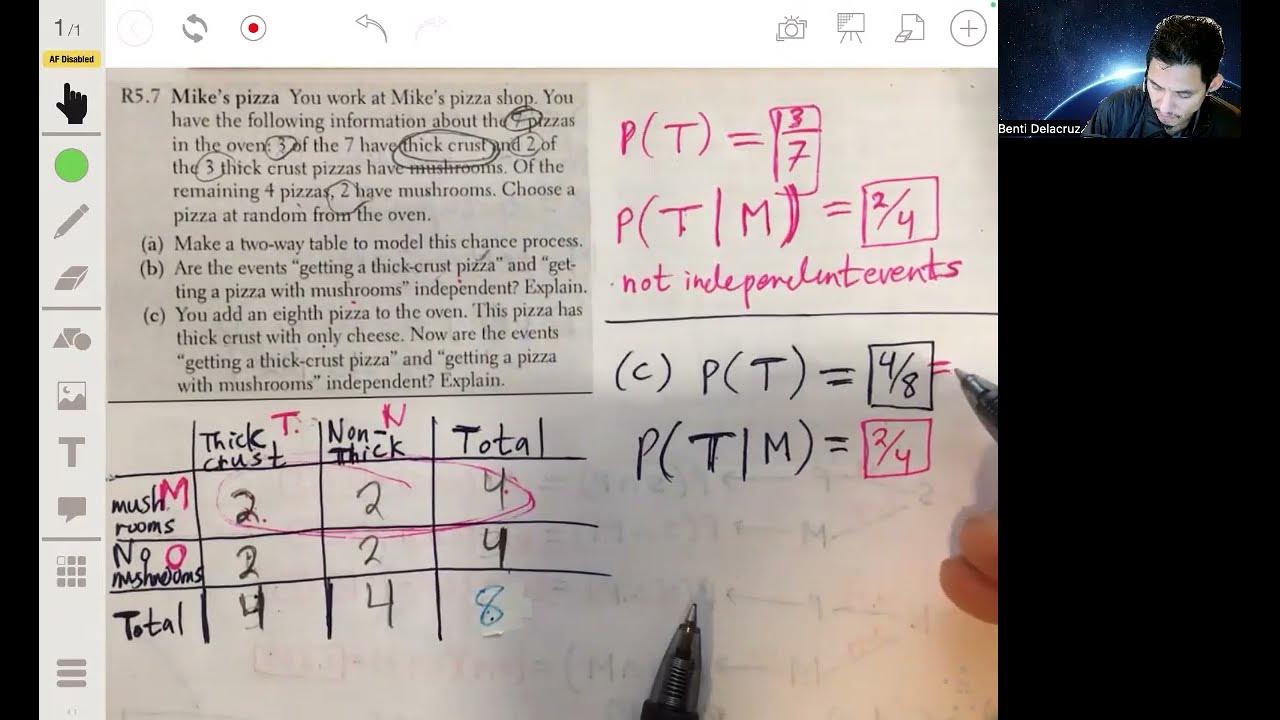 1/1
AF Disabled
R5.7 Mike's pizza You work at Mike's pizza shop. You
have the following information about the 7 pizzas
in the oven: 3 of the 7 have thick crust and 2 of
the 3 thick crust pizzas have mushrooms. Of the
remaining 4 pizzas, 2 have mushrooms. Choose a
pizza at random from the oven.
(a) Make a two-way table to model this chance process.
(b) Are the events "getting a thick-crust pizza" and "get-
ting a pizza with mushrooms" independent? Explain.
(c) You add an eighth pizza to the oven. This pizza has
thick crust with only cheese. Now are the events
"getting a thick-crust pizza" and "getting a pizza
with mushrooms" independent? Explain.
P(T) = 3/7
P(T|M) = 2/4
not independent events
(c) P(T) = 4/8 =
P(T|M) = 2/4
Thick crust T. Non-Thick N Total
mushrooms M 2 2 4
No mushrooms O 2 2 4
Total 4 4 8
Benti Delacruz
T